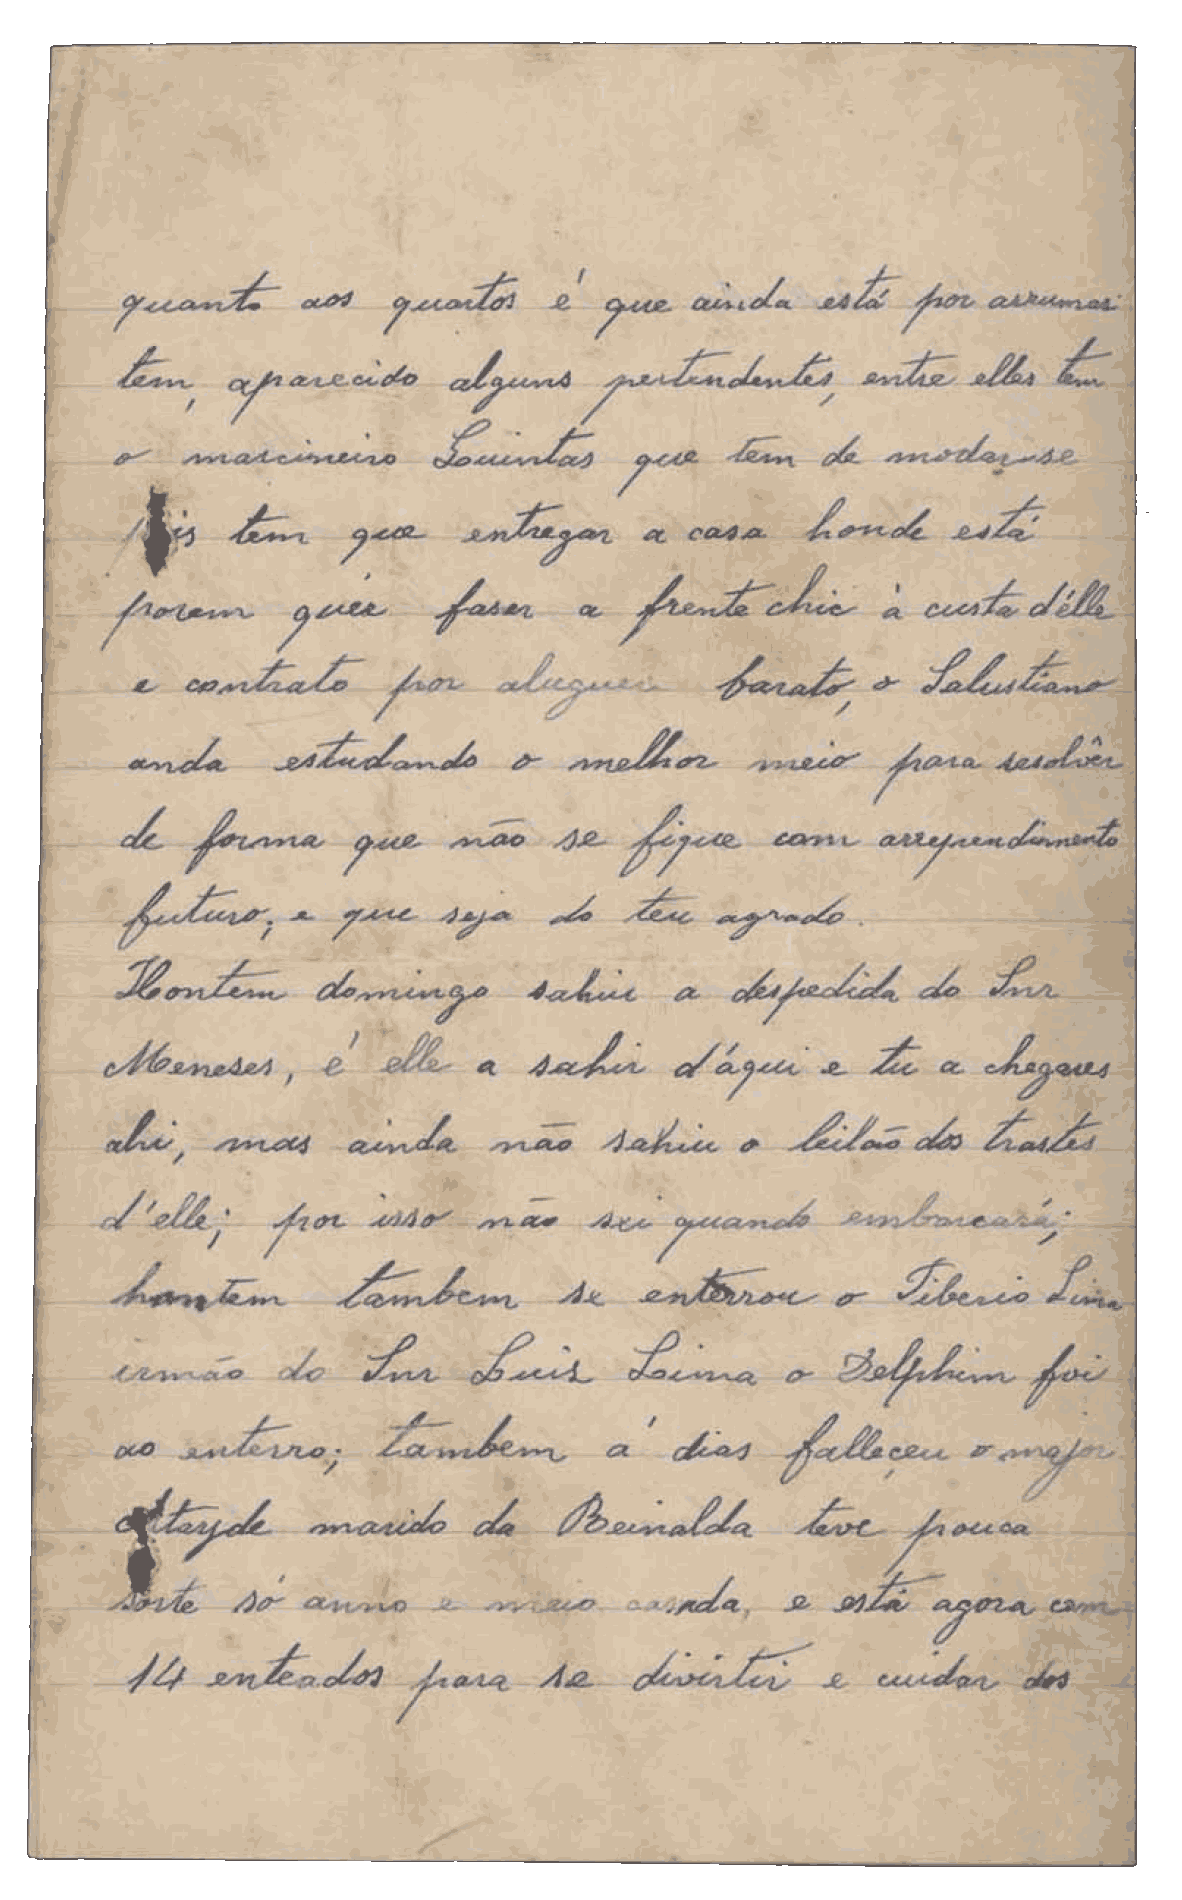 quanto aos quartos é que ainda está por arrumar
tem, aparecido alguns pertendentes, entre elles tem
o marcineiro Quintas que tem de modar-se
tem que entregar a casa honde está
porem quér faser a frente chic à custa d'élle
e contrato por aluguer barato, o Salustiano
anda estudando o melhor meio para resolvêr
de forma que não se fique com arrependimento
futuro, e que seja do teu agrado.
Hontem domingo sahiu a despedida do Snr
Meneses, é elle a sahir d'áqui e tu a chegares
ahi, mas ainda não sahiu o leilão dos trastes
d'elle; por isso não sei quando embarcará;
hontem tambem se enterrou o Tiberio Lima
irmão do Snr Luis Lima o Delphim foi
ao enterro; tambem á dias falleçeu o major
marido da Reinalda teve pouca
sorte só anno e meio casada, e está agora com
14 enteados para se divirtir e cuidar dos